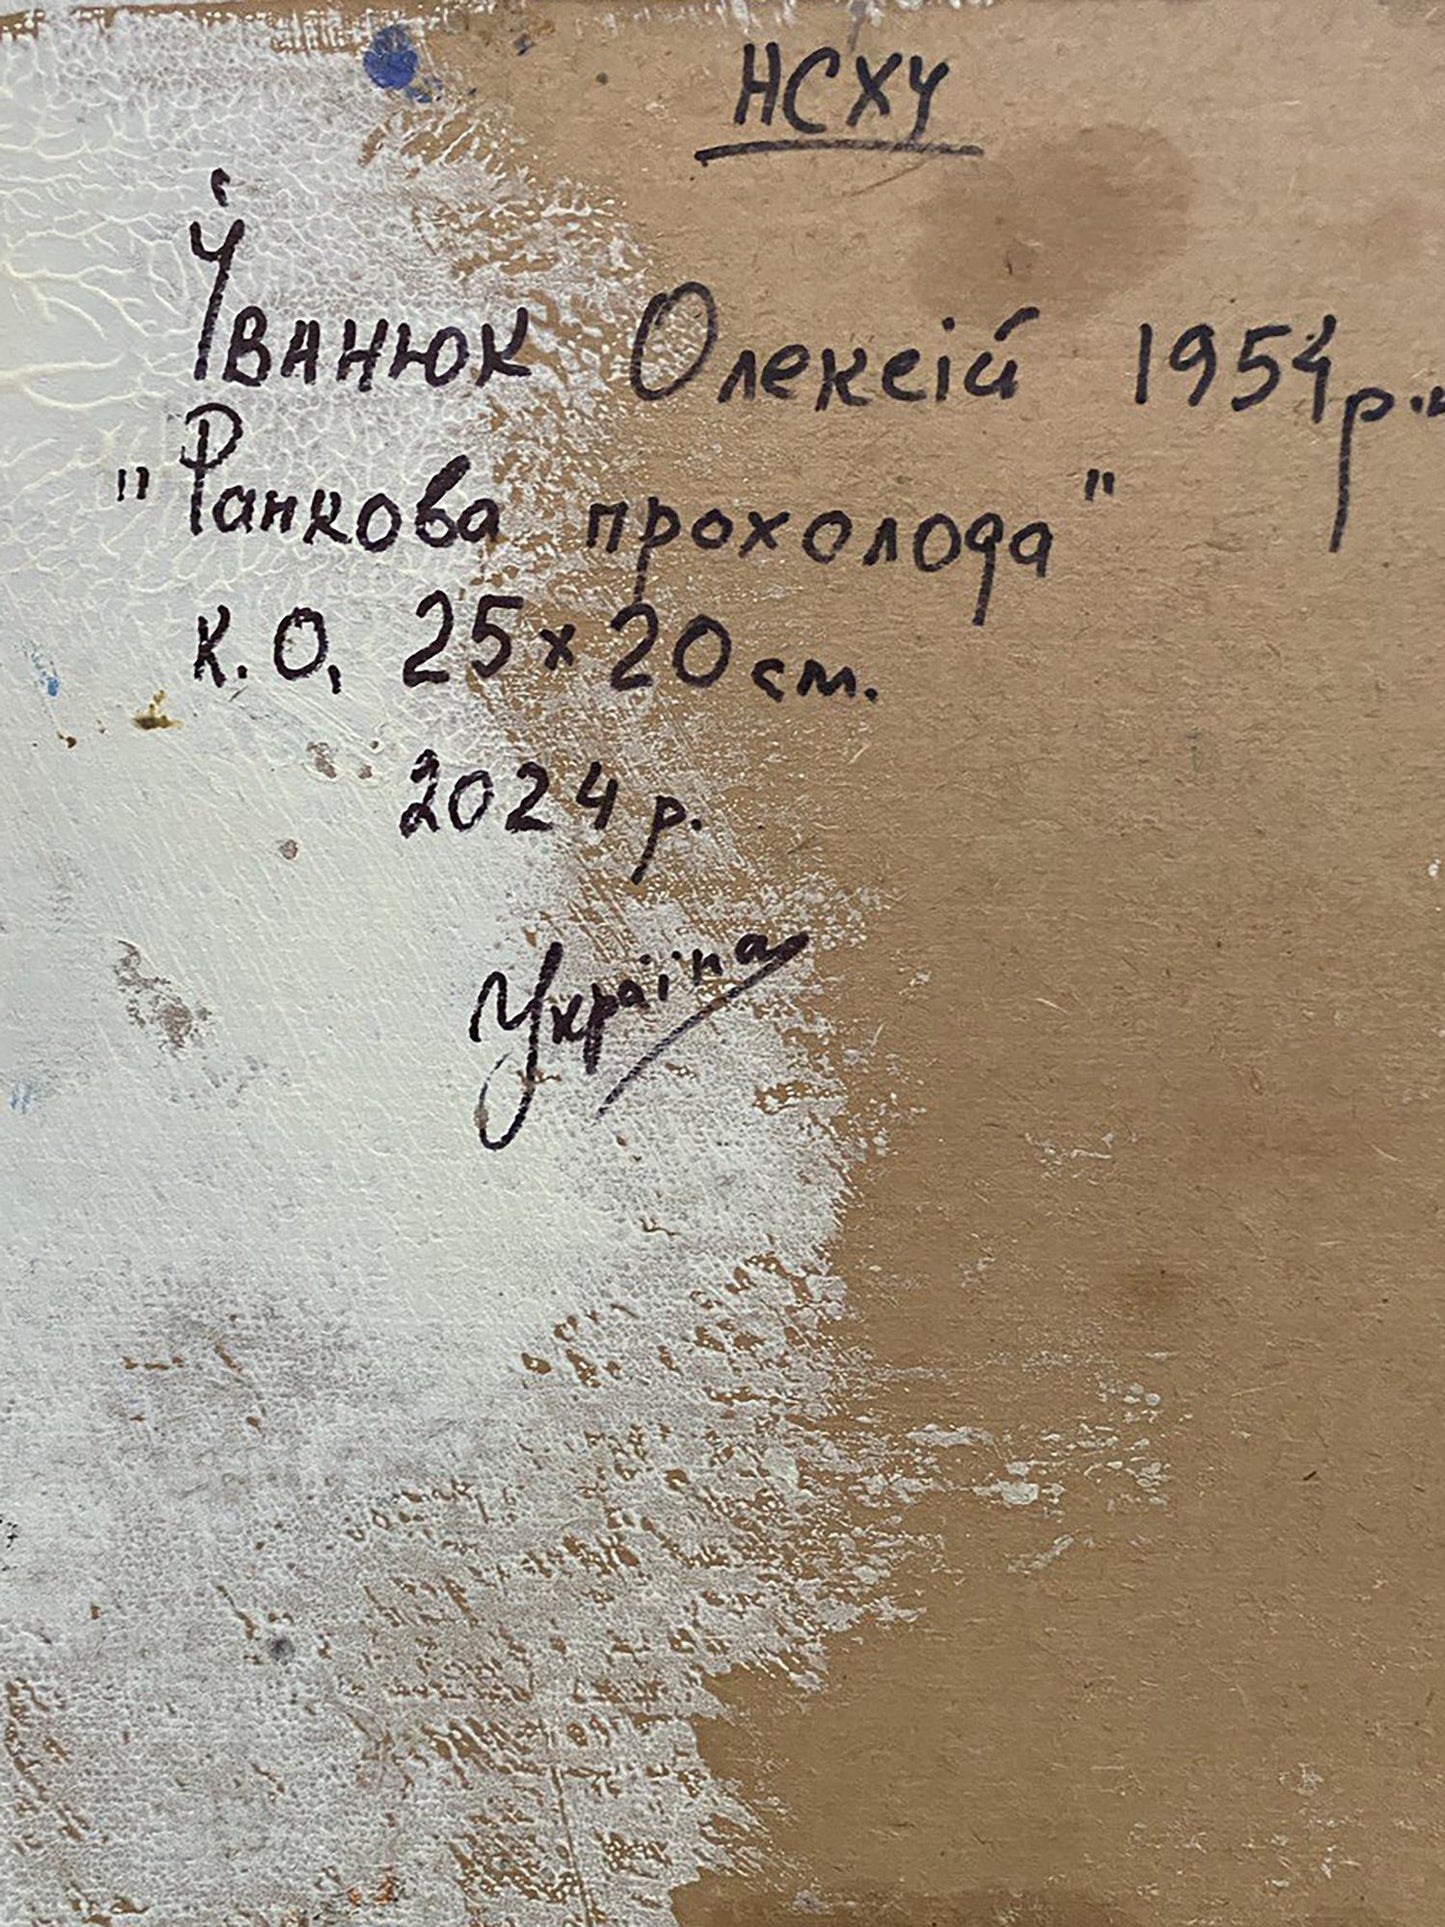 НСХУ
Іванюк Олексій 1954 р.н
"Ранкова прохолода"
к.О. 25×20 см.
2024 р.
Україна